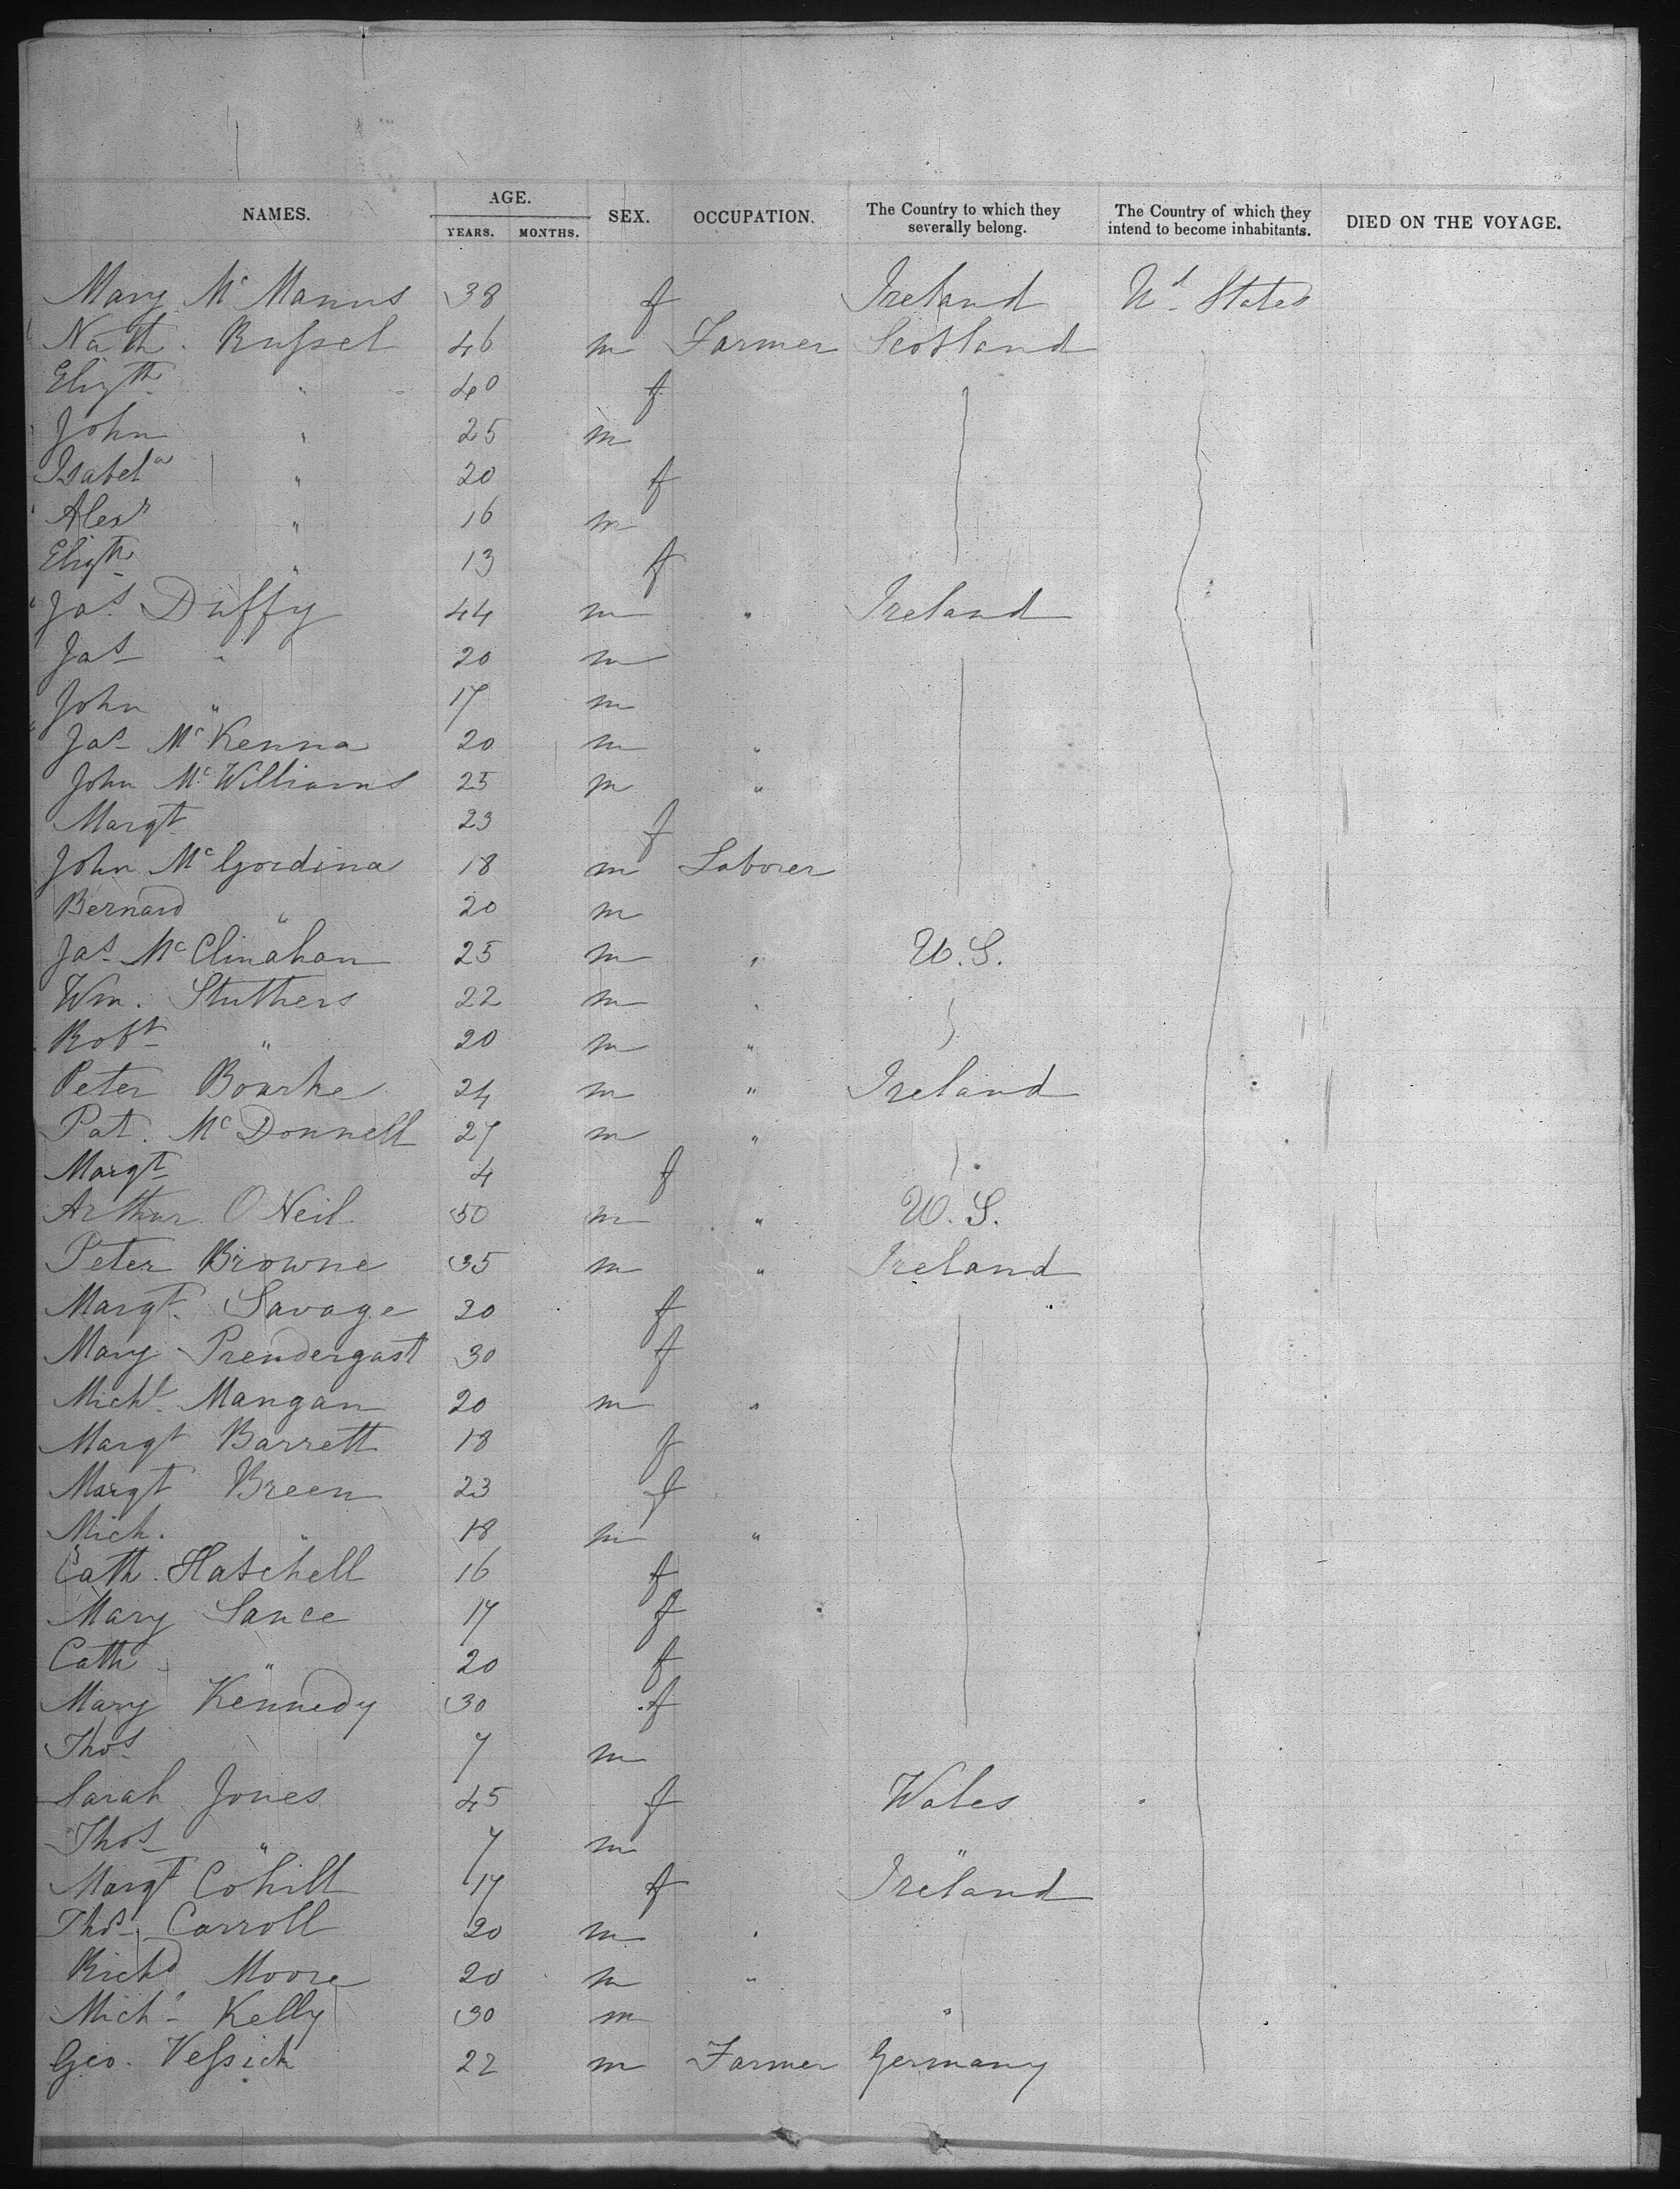 NAMES. AGE. YEARS. MONTHS. SEX. OCCUPATION. The Country to which they severally belong. The Country of which they intend to become inhabitants. DIED ON THE VOYAGE.
Mary Mc Manus 38 f Ireland Ud States
Nath. Russel 46 m Farmer Scotland
Elizth " 40 f
John " 25 m
Isabela " 20 f
Alexr " 16 m
Elizth " 13 f
Jas Duffy 44 m " Ireland
Jas " 20 m
John " 17 m
Jas Mc Kenna 20 m "
John Mc Williams 25 m "
Margt 23 f
John Mc Gordina 18 m Laborer
Bernard " 20 m
Jas Mc Clinahan 25 m " U.S.
Wm. Stuthers 22 m "
Robt " 20 m "
Peter Bourke 24 m " Ireland
Pat. Mc Donnell 27 m "
Margt 4 f
Arthur O Neil 50 m " U.S.
Peter Browne 35 m " Ireland
Margt Savage 20 f
Mary Prendergast 30 f
Michl Mangan 20 m "
Margt Barrett 18 f
Margt Breen 23 f
Mich. " 18 m "
Cath. Hatchell 16 f
Mary Lance 17 f
Cath " 20 f
Mary Kennedy 30 f
Thos 7 m
Sarah Jones 45 f Wales
Thos " 7 m "
Margt Cohill 17 f Ireland
Thos Carroll 20 m "
Richd Moore 20 m "
Michl Kelly 30 m "
Geo. Vessich 22 m Farmer Germany